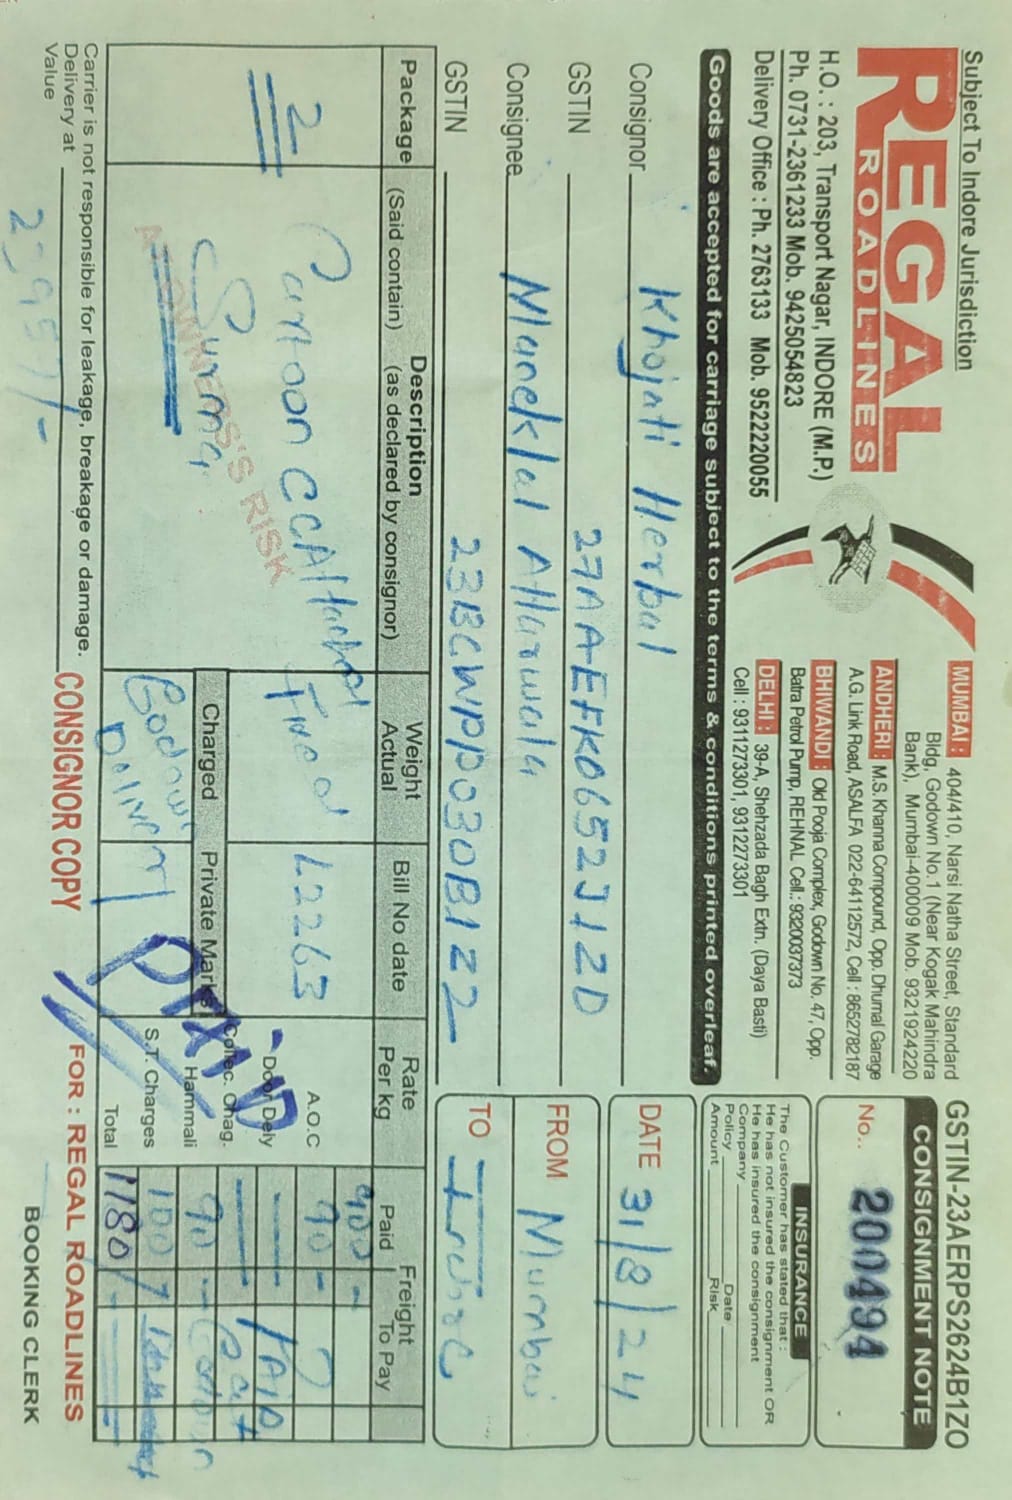 Subject To Indore Jurisdiction
REGAL
ROADLINES
H.O. : 203, Transport Nagar, INDORE (M.P.)
Ph. 0731-2361233 Mob. 9425054823
Delivery Office : Ph. 2763133 Mob. 9522220055
MUMBAI : 404/410, Narsi Natha Street, Standard
Bldg, Godown No.1 (Near Kogak Mahindra
Bank), Mumbai-400009 Mob. 9321924220
ANDHERI : M.S. Khanna Compound, Opp. Dhumal Garage
A.G. Link Road, ASALFA 022-64112572, Cell : 8652782187
BHIWANDI : Old Pooja Complex, Godown No. 47, Opp.
Batra Petrol Pump, REHNAL Cell.: 9320037373
DELHI : 39-A, Shehzada Bagh Extn. (Daya Basti)
Cell : 9311273301, 9312273301
GSTIN-23AERPS2624B1ZO
CONSIGNMENT NOTE
No.. 200494
INSURANCE
The Customer has stated that :
He has not insured the consignment OR
He has insured the consignment
Company
Policy Date
Amount Risk
Goods are accepted for carriage subject to the terms & conditions printed overleaf.
Consignor Khojati Herbal
GSTIN 27AAEFK0652J1ZD
Consignee Maneklal Attarwala
GSTIN 23BCWPP0030B1Z2
DATE 31/8/24
FROM Mumbai
TO Indore
Package
Description
(Said contain) (as declared by consignor)
Weight
Actual
Bill No date
Rate
Per kg
Freight
Paid To Pay
2
Cartoon
Surma
AT OWNERS'S RISK
Fixed
L2263
Charged
Private Marks
Godown
Delivery
PAID
900 -
A.O.C 90 -
Door Dely
Collec. Chag.
Hammali 90 -
S.T. Charges 100
Total 1180/-
PAID
Carrier is not responsible for leakage, breakage or damage.
Delivery at
Value
CONSIGNOR COPY
FOR : REGAL ROADLINES
BOOKING CLERK